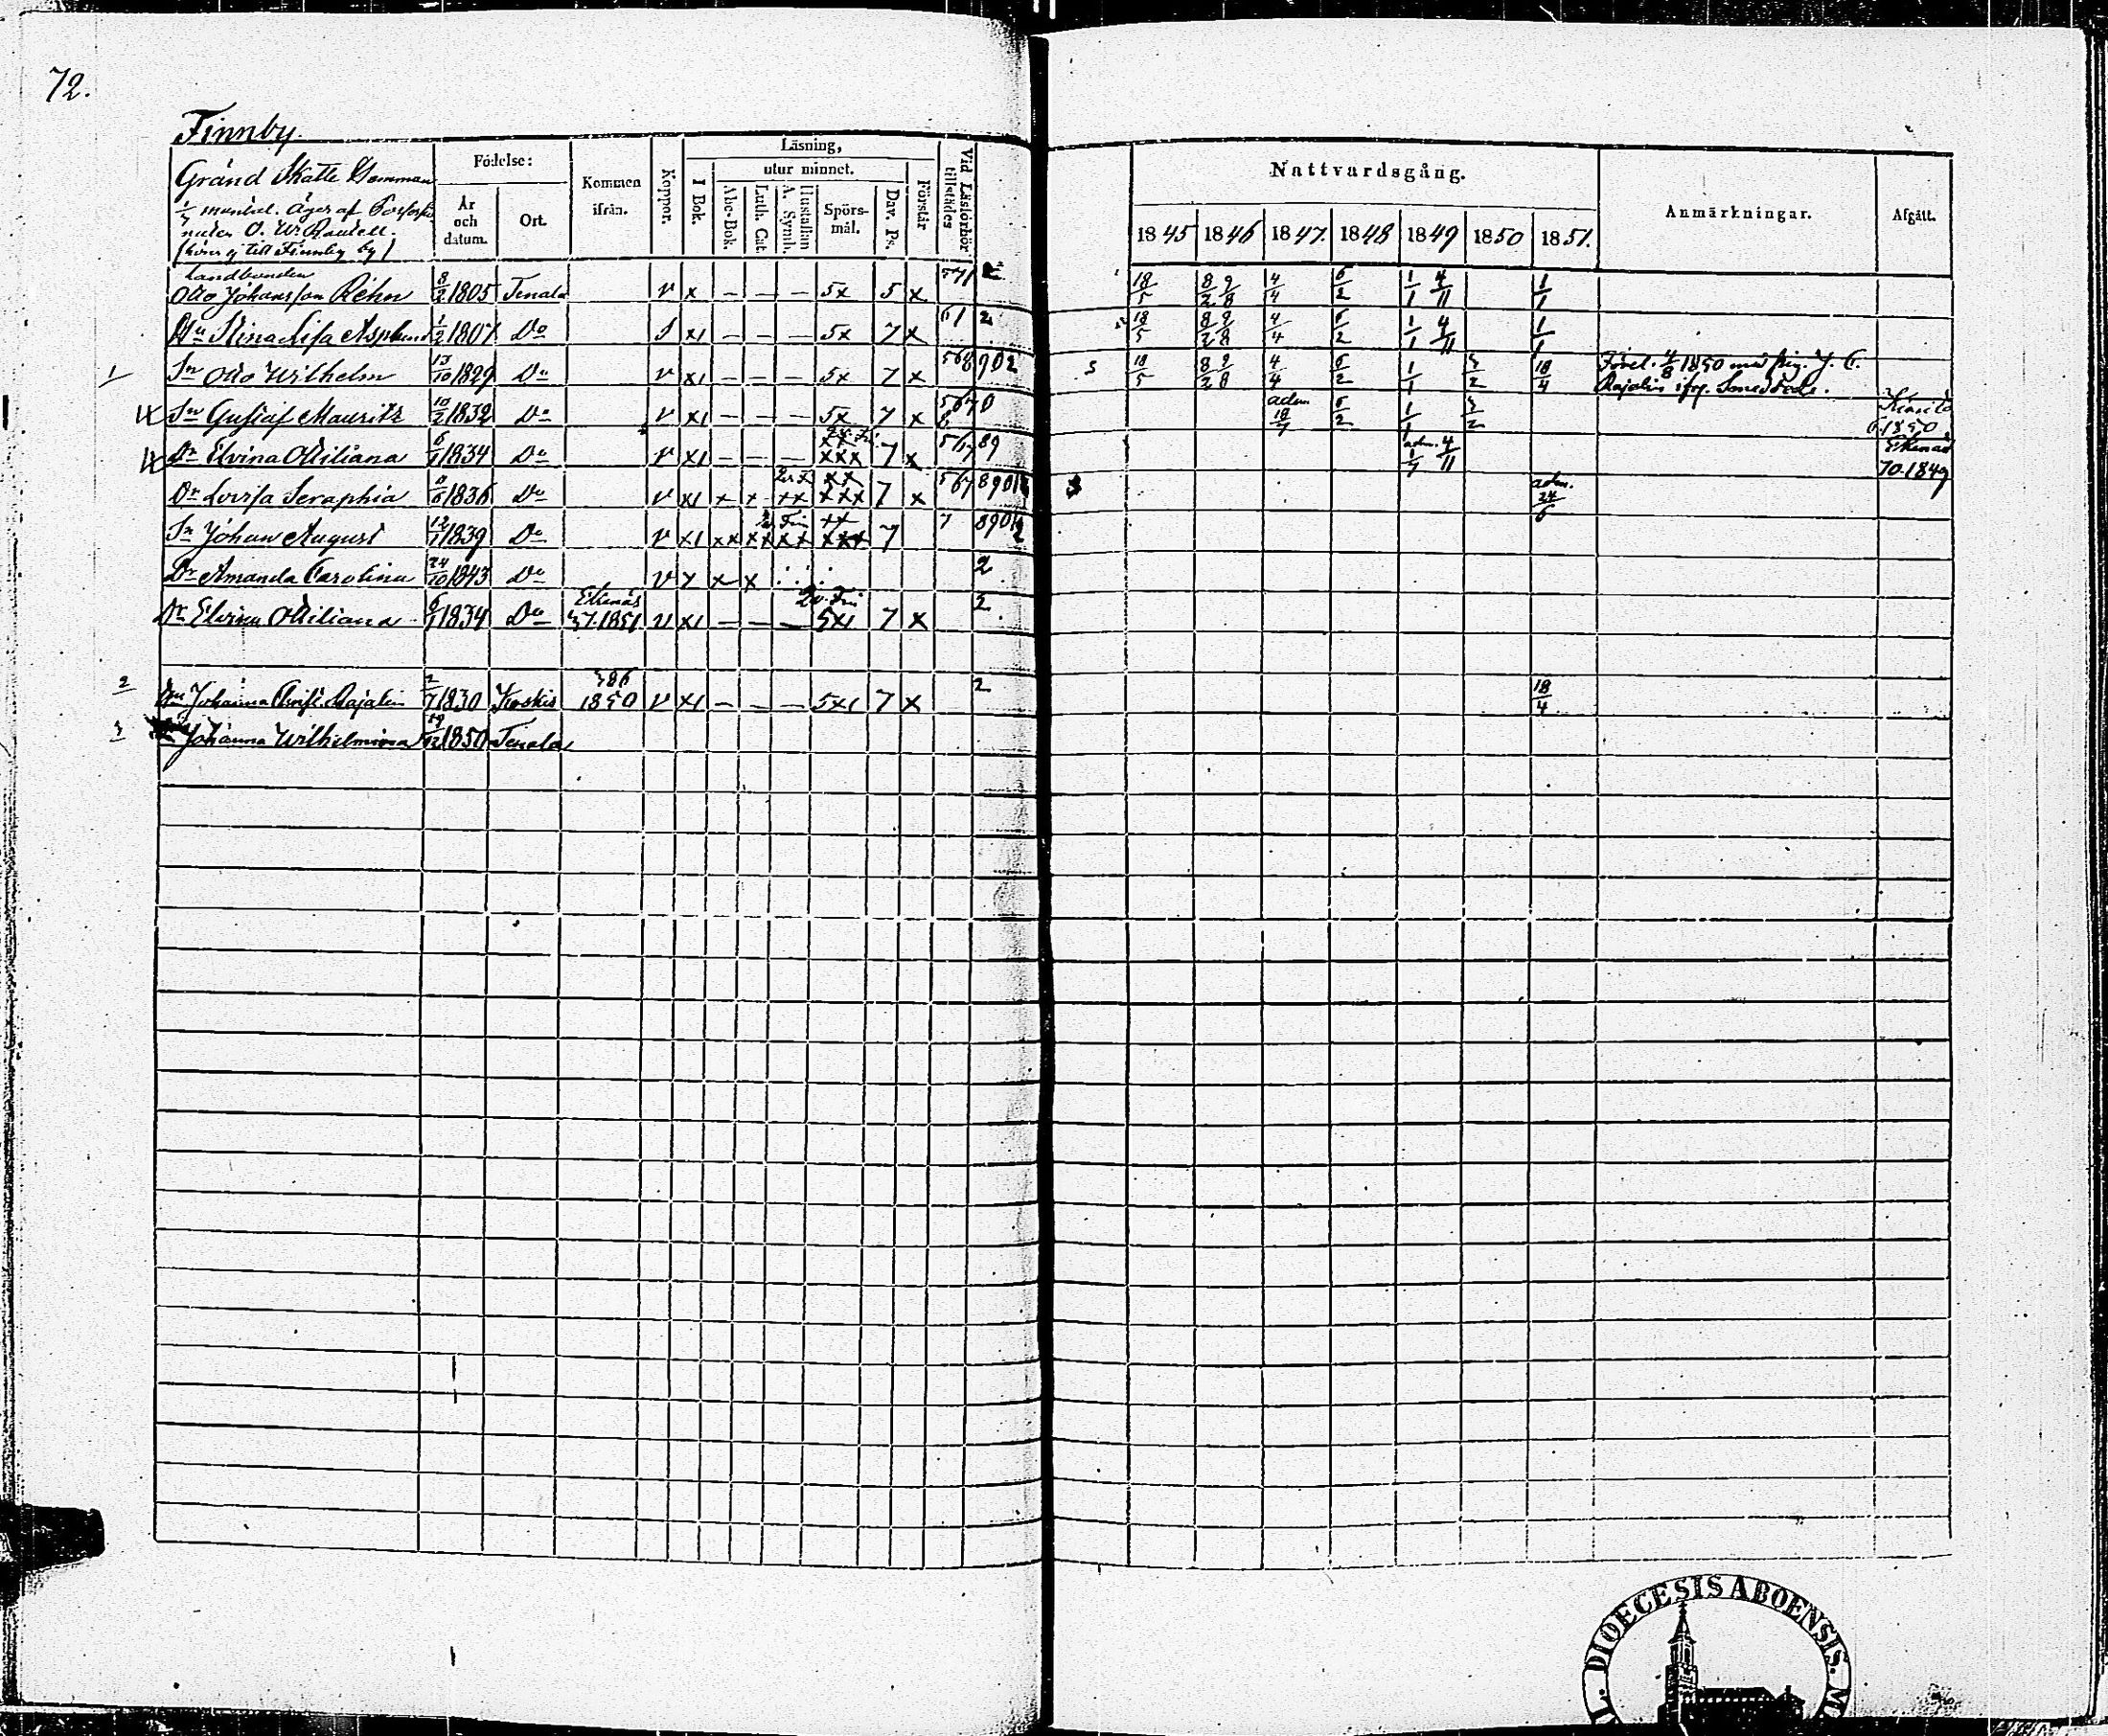 72.
Finnby.
Gränd Skatte Hemman
1/3 mantal. Äger af
O. W.
(hörer ej till Finnby by)
Födelse:
År och datum.
Ort.
Kommen ifrån.
Koppor.
Läsning,
I Bok.
utur minnet.
Abc-Bok.
Luth. Cat.
Hustaflan A. Symb.
Spörsmål.
Dav. Ps.
Förstår
Vid Läsförhör tillstädes
Nattvardsgång.
1845 1846 1847. 1848 1849 1850 1851.
Anmärkningar.
Afgått.
Landbonden
Otto Johansson Rehn 8/2 1805 Tenala v x — — — 5x 5 x 18/5 8/2 9/8 4/4 6/2 1/1 4/11 1/1
Hu Stina Lisa Asplund 1/2 1807 Do xı — — — 5x 7 x 61 2 18/5 8/2 9/8 4/4 6/2 1/1 4/11 1/1
1 Sn Otto Wilhelm 13/10 1829 Do v xı — — — 5x 7 x 568 902 s 18/5 8/2 9/8 4/4 6/2 1/1 3/2 18/4 1850 med pig. J. C.
Rajalin ifrg.
Sn Gustaf Mauritz 10/2 1832 Do v xı — — — 5x 7 x 567 0 adm. 18/7 6/2 1/1 3/2 Kimito
6.1850
Dr Elvina Miliana 6/1 1834 Do v xı — — — xxx 7 x 567 89 adm. 1/7 4/11 Ekenäs
70.1849
Dr Lovisa Seraphia 8/6 1836 Do v xı x x xx xxx 7 x 567 8901 adm. 24/6
Sn Johan August 12/1 1839 Do v xı xx xx xx xxx 7 7 8901 2
Dr Amanda Carolina 24/10 1843 Do v x x x 2
Dr Elvira Miliana 6/1 1834 Do Ekenäs
37.1851 v xı — — — 5xı 7 x 2
2 Hu Johanna Christ. Rajalin 2/7 1830 Koskis 386
1850 v xı — — — 5xı 7 x 2 18/4
3 Johanna Wilhelmina 1850 Tenala
DIOECESIS ABOENSIS.